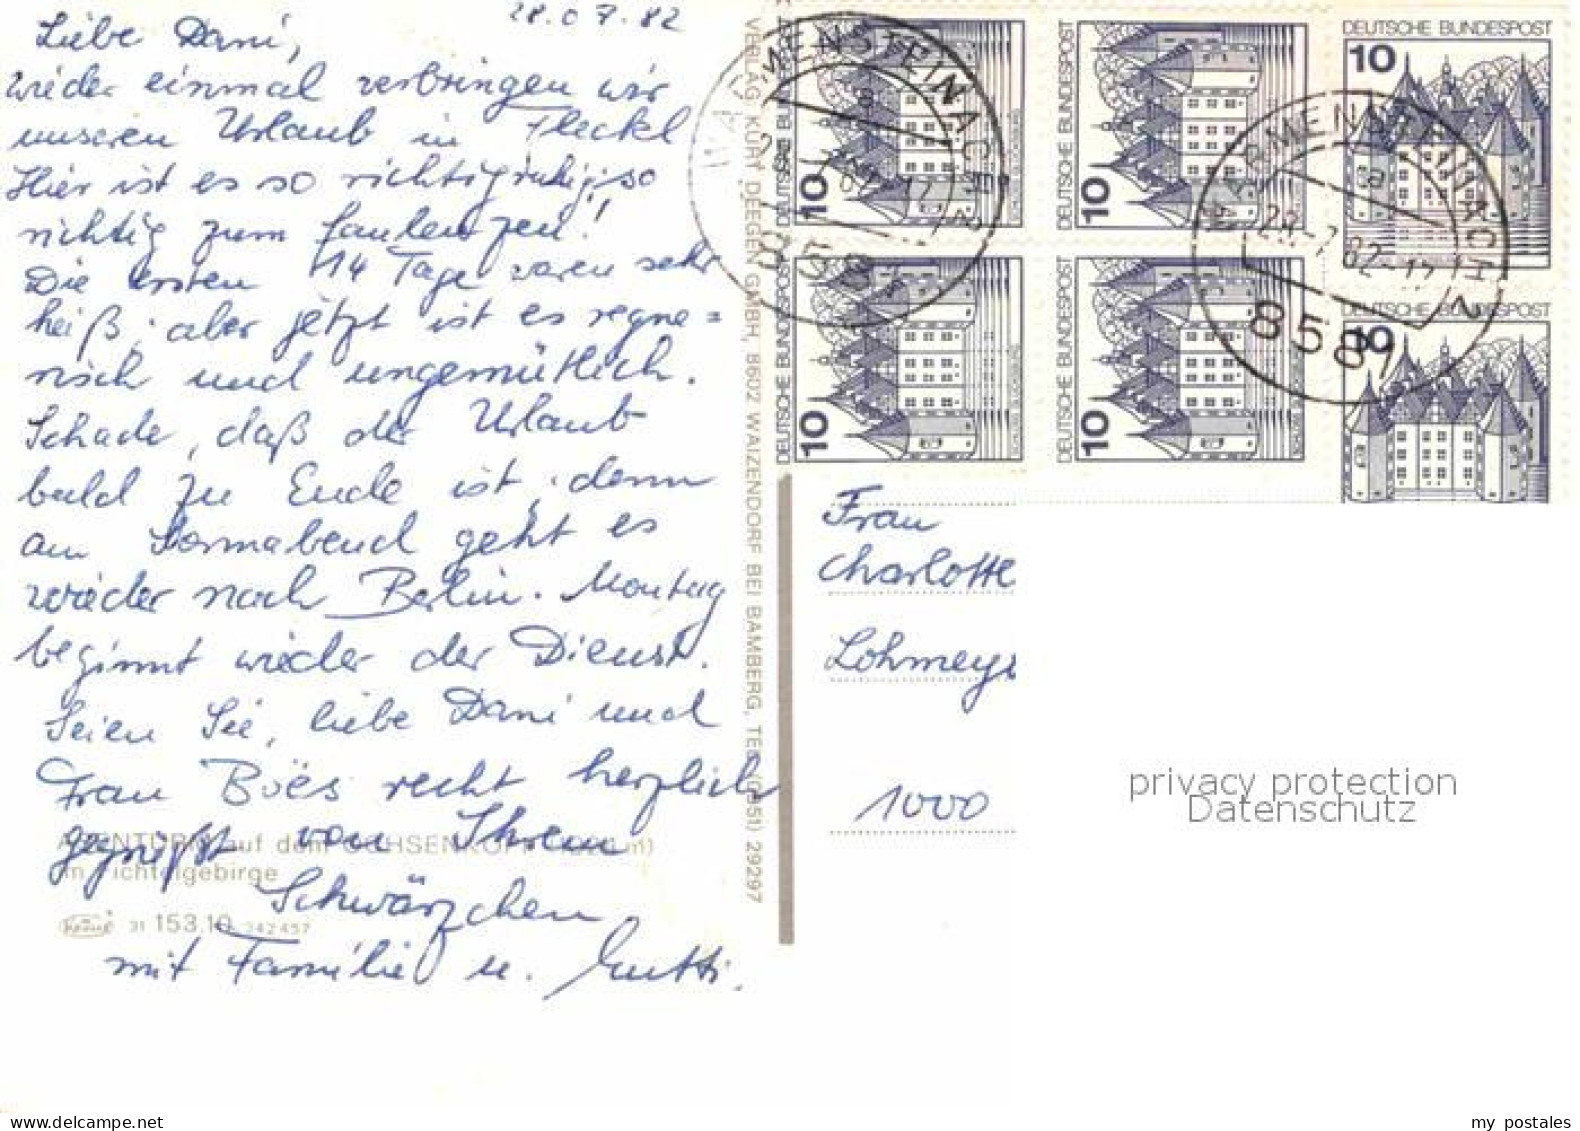 28.07.82
Liebe Dani,
wieder einmal verbringen wir
unseren Urlaub in Fleckl
Hier ist es so richtig ruhig; so
richtig zum faulenzen!
Die ersten 14 Tage waren sehr
heiß, aber jetzt ist es regne=
risch und ungemütlich.
Schade, daß der Urlaub
bald zu Ende ist, denn
am Sonnabend geht es
wieder nach Berlin. Montag
beginnt wieder der Dienst.
Seien Sie, liebe Dani und
Frau Boës recht herzlich
gegrüßt von Ihrem
Schwärzchen
mit Familie u. Mutti.
ASENTURM auf dem OCHSENKOPF (1024 m)
im Fichtelgebirge
31 153.10 242457
VERLAG KURT DEEGEN GMBH, 8602 WAIZENDORF BEI BAMBERG, TEL. (0951) 29297
DEUTSCHE BUNDESPOST
10
SCHLOSS GLÜCKSBURG
DEUTSCHE BUNDESPOST
10
DEUTSCHE BUNDESPOST
10
DEUTSCHE BUNDESPOST
10
SCHLOSS GLÜCKSBURG
DEUTSCHE BUNDESPOST
10
DEUTSCHE BUNDESPOST
10
WARMENSTEINACH 2
a
8581
WARMENSTEINACH 2
a
8581
Frau
Charlotte
Lohmeys
1000
privacy protection
Datenschutz
my postales